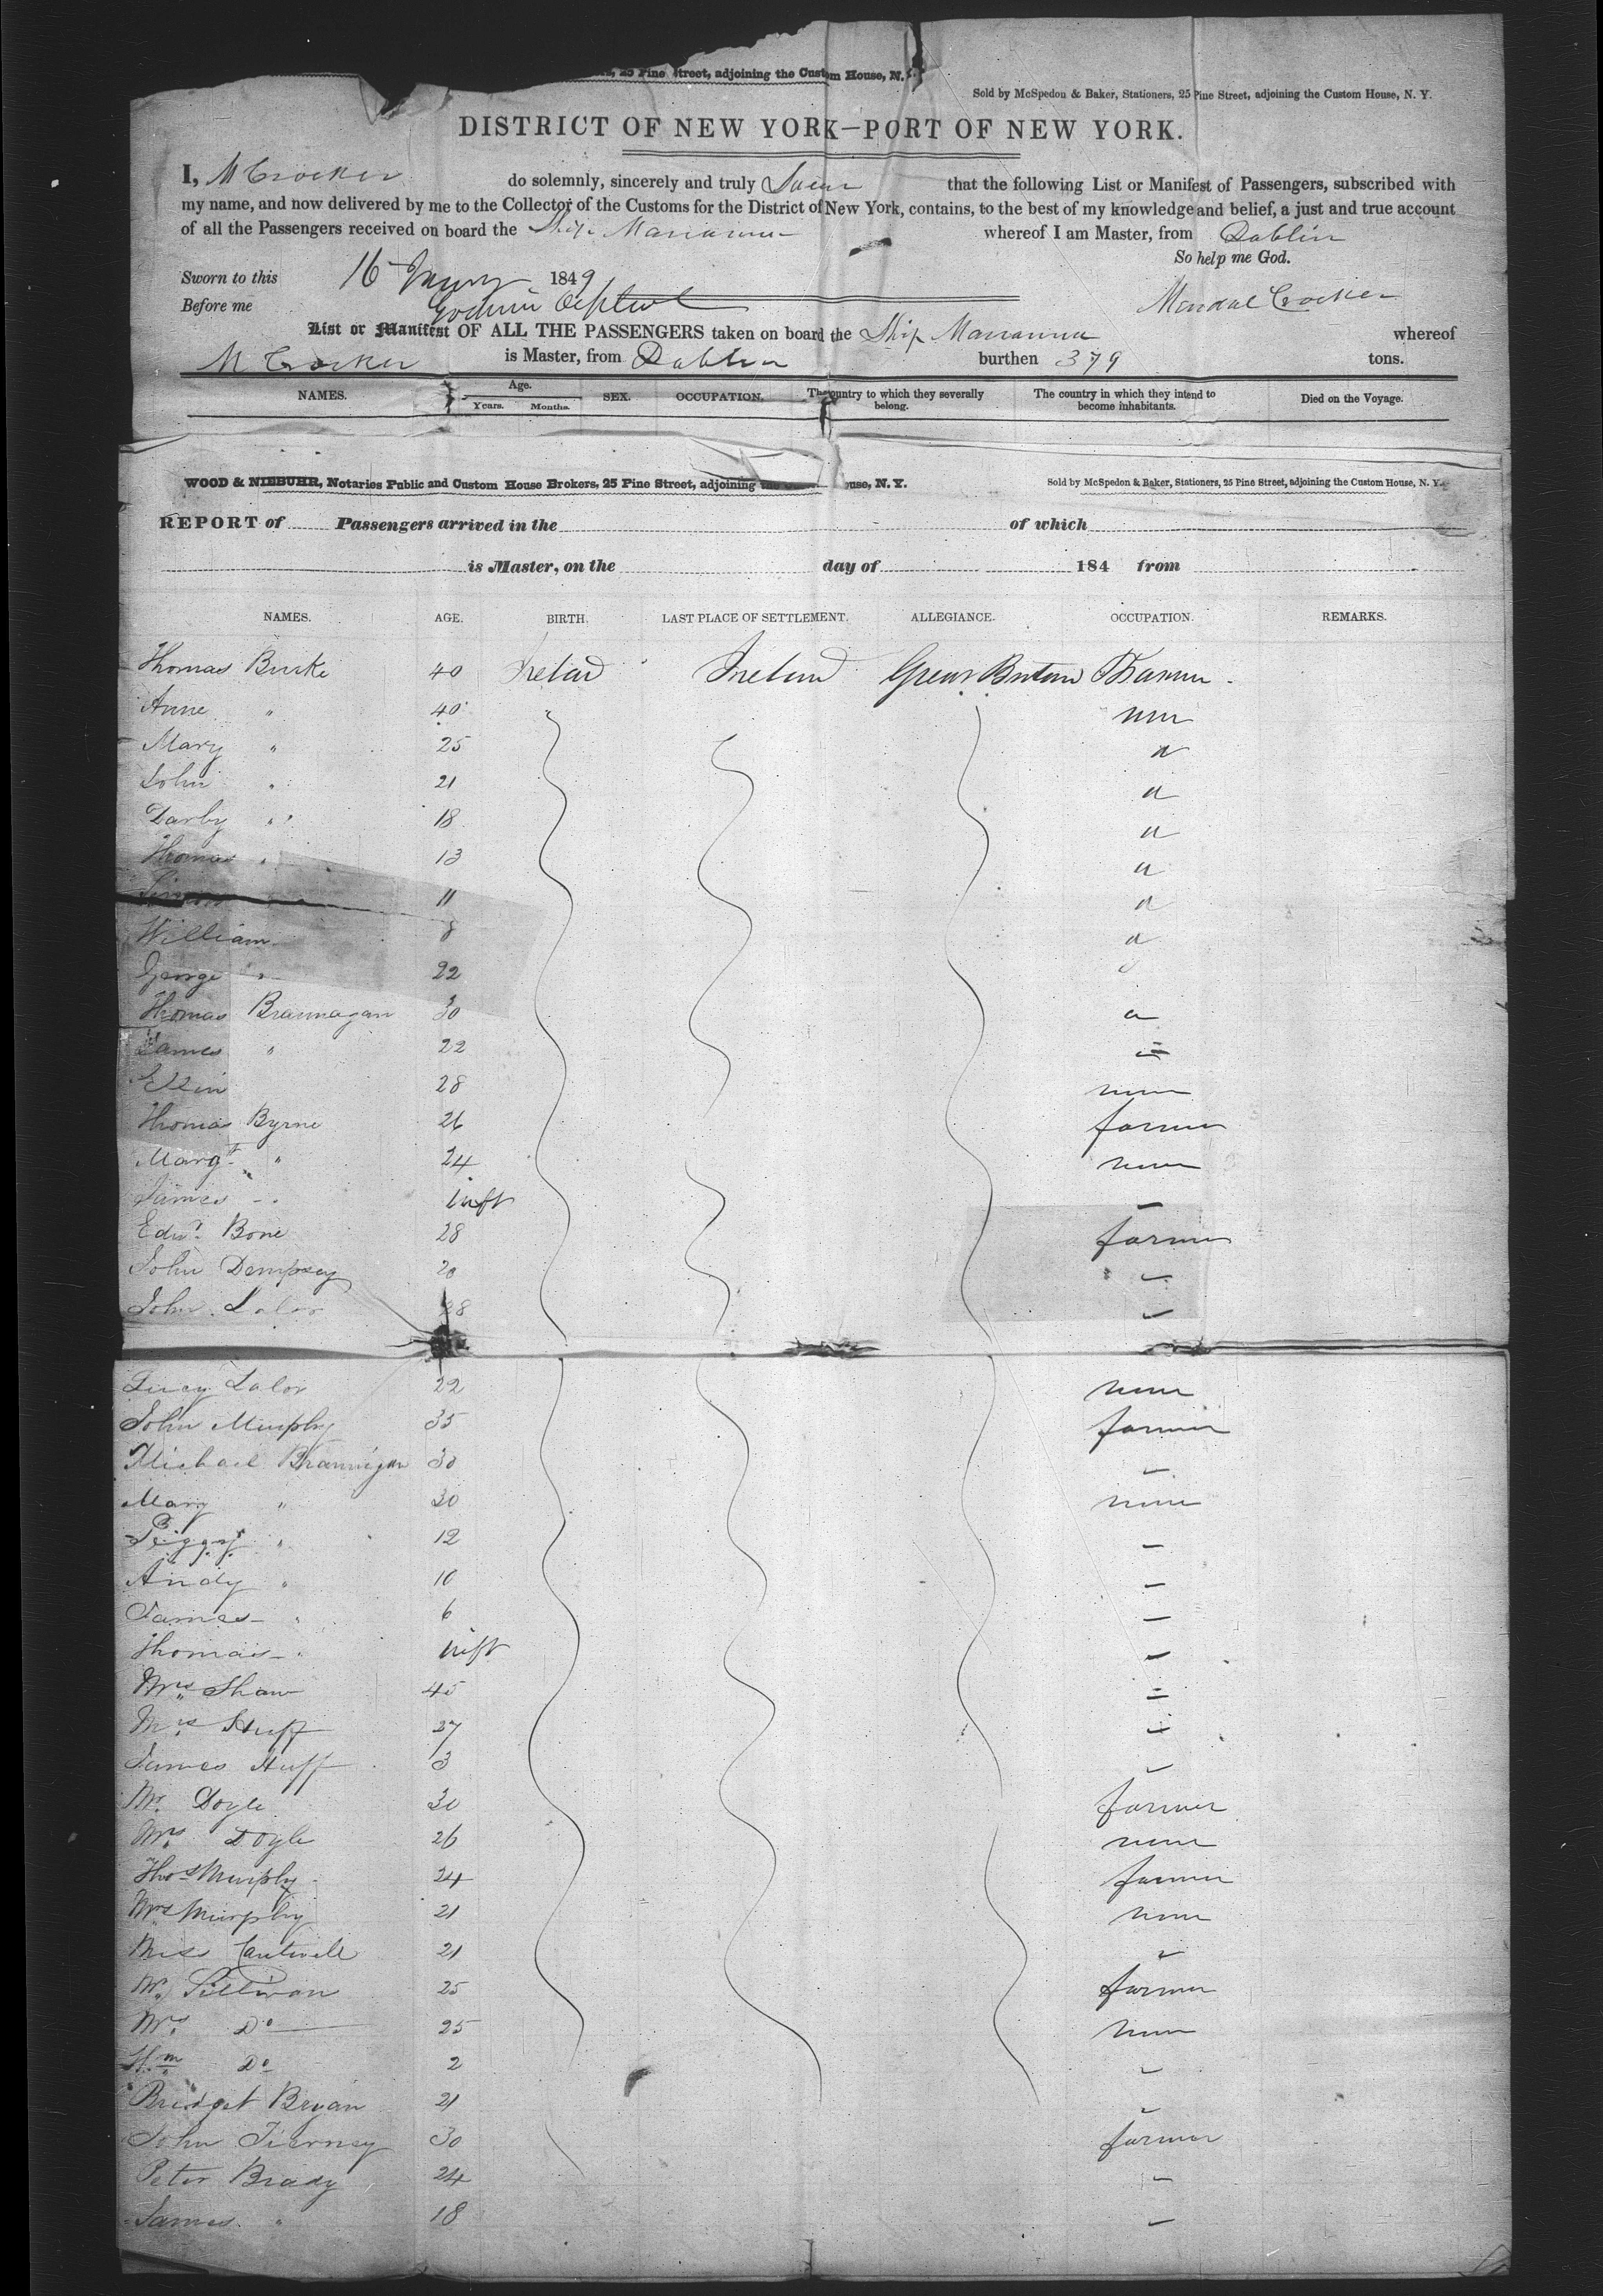 25 Pine Street, adjoining the Custom House, N. Y.
Sold by McSpedon & Baker, Stationers, 25 Pine Street, adjoining the Custom House, N. Y.
DISTRICT OF NEW YORK—PORT OF NEW YORK.
I, M Crocker do solemnly, sincerely and truly Swear that the following List or Manifest of Passengers, subscribed with
my name, and now delivered by me to the Collector of the Customs for the District of New York, contains, to the best of my knowledge and belief, a just and true account
of all the Passengers received on board the Ship Marianna whereof I am Master, from Dublin
So help me God.
Sworn to this 16 1849
Before me Mendal Crocker
List or Manifest OF ALL THE PASSENGERS taken on board the Ship Marianna whereof
M Crocker is Master, from Dublin burthen 379 tons.
NAMES. Age. Years. Months. SEX. OCCUPATION. The country to which they severally belong. The country in which they intend to become inhabitants. Died on the Voyage.
WOOD & NIEBUHR, Notaries Public and Custom House Brokers, 25 Pine Street, adjoining the House, N. Y. Sold by McSpedon & Baker, Stationers, 25 Pine Street, adjoining the Custom House, N. Y.
REPORT of Passengers arrived in the of which
is Master, on the day of 184 from
NAMES. AGE. BIRTH. LAST PLACE OF SETTLEMENT. ALLEGIANCE. OCCUPATION. REMARKS.
Thomas Burke 40 Ireland Ireland Great Britain Farmer
Anne " 40 none
Mary " 25 "
John " 21 "
Darby " 18 "
Thomas " 13 "
11 "
William 8 "
George " 22
Thomas Brannagan 30 "
James " 22
28 none
Thomas Byrne 26 farmer
Margt " 24 none
James " inft —
Edwd Bone 28 farmer
John Dempsey 20 —
John Lalor 28 —
Lucy Lalor 22 none
John Murphy 35 farmer
Michael Brannigan 30 —
Mary " 30 none
Peggy " 12 —
Andy " 10 —
James " 6 —
Thomas " inft —
Mrs Shaw 45 —
Mrs Huff 27 —
James Huff 3 —
Mr Doyle 30 farmer
Mrs Doyle 26 none
Thos Murphy 24 farmer
Mrs Murphy 21 none
Miss Cantwell 21 —
Mr Sullivan 25 farmer
Mrs Do 25 none
Wm Do 2 —
Bridget Bryan 21 —
John Tierney 30 farmer
Peter Brady 24 —
James " 18 —